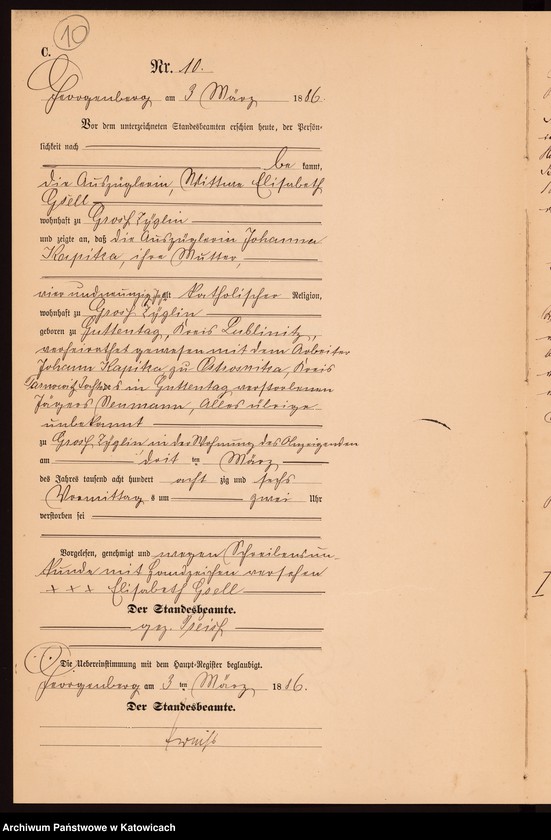 10
C.
Nr. 10.
Georgenberg am 3 März 1886.
Vor dem unterzeichneten Standesbeamten erschien heute, der Persön-
lichkeit nach
be kannt,
die Auszüglerin, Wittwe Elisabeth
Gsell
wohnhaft zu Groß Zyglin
und zeigte an, daß die Auszüglerin Johanna
Kapitza, ihre Mutter,
vierundneunzig Jahr alt katholischer Religion,
wohnhaft zu Groß Zyglin
geboren zu Guttentag, Kreis Lublinitz,
verheirathet gewesen mit dem Arbeiter
Johann Kapitza zu Ostrosnitza, Kreis
Tarnowitz Tochter des in Guttentag verstorbenen
Jägers Neumann, Alles übrige
unbekannt
zu Groß Zyglin in der Wohnung des Anzeigenden
am drit ten März
des Jahres tausend acht hundert acht zig und sechs
Vormittag s um zwei Uhr
verstorben sei
Vorgelesen, genehmigt und wegen Schreibensun-
kunde mit Handzeichen versehen
+ + + Elisabeth Gsell
Der Standesbeamte.
gez.
Die Uebereinstimmung mit dem Haupt-Register beglaubigt.
Georgenberg am 3 ten März 1886.
Der Standesbeamte.
Archiwum Państwowe w Katowicach